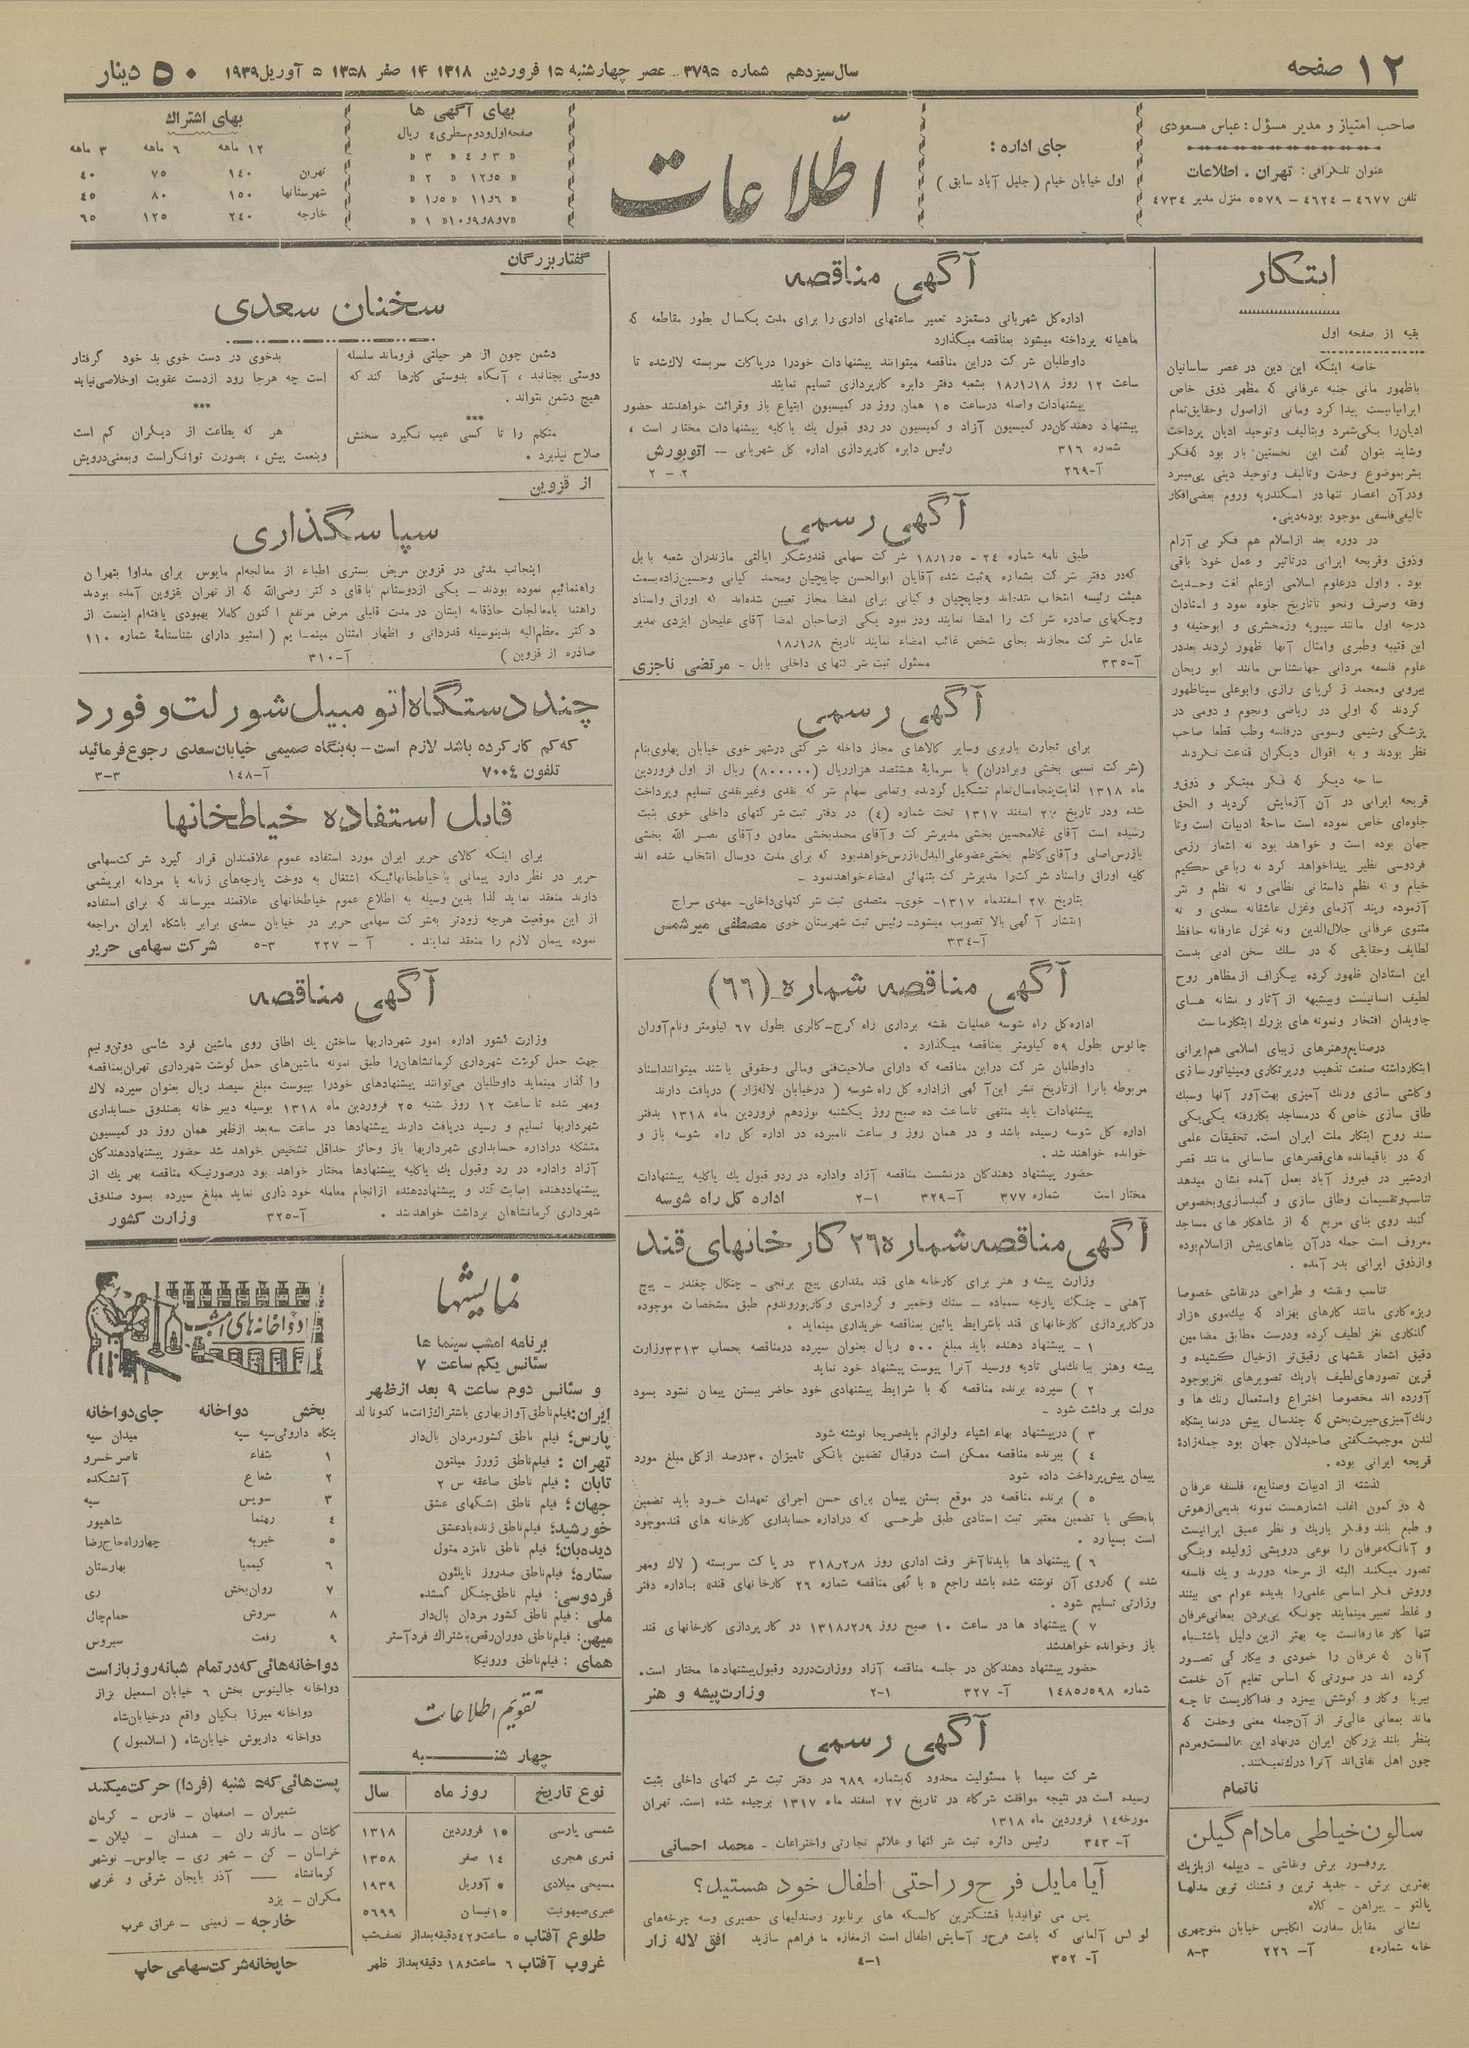 ۱۲ صفحه
سال سیزدهم شماره ۳۷۹۵ عصر چهارشنبه ۱۵ فروردین ۱۳۱۸ ۱۴ صفر ۱۳۵۸ ۵ آوریل ۱۹۳۹
۵۰ دینار
صاحب امتیاز و مدیر مسؤل : عباس مسعودی
عنوان تلگرافی : تهران . اطلاعات
تلفن ۴۶۷۷ - ۴۶۲۴ - ۵۵۷۹ منزل مدیر ۴۷۳۴
جای اداره :
اول خیابان خیام ( جلیل آباد سابق )
اطلاعات
بهای آگهی ها
صفحه اول و دوم سطری ٤ ریال
« ۳ و ٤ « ۳ «
« ۵ و ۱۲ « ۲ «
« ۶ و ۱۱ « ۱٫۵ «
« ۷ و ۸ و ۹ و ۱۰ « ۱ «
بهای اشتراك
۱۲ ماهه ۶ ماهه ۳ ماهه
تهران ۱۴۰ ۷۵ ۴۰
شهرستانها ۱۵۰ ۸۰ ۴۵
خارجه ۲۴۰ ۱۲۵ ۶۵
ابتکار
بقیه از صفحه اول
خاصه اینکه این دین در عصر ساسانیان
باظهور مانی جنبه عرفانی که مظهر ذوق خاص
ایرانیانیست پیدا کرد ومانی ازاصول وحقایق تمام
ادیان را یکی شمرد وبتالیف وتوحید ادیان پرداخت
وشاید بتوان گفت این نخستین بار بود که فکر
بشر بموضوع وحدت وتالیف وتوحید دینی پی میبرد
ودرآن اعصار تنها در اسکندریه وروم بعضی افکار
تالیفی فلسفی موجود بودنه دینی.
در دوره بعد ازاسلام هم فکر بی آرام
وذوق وقریحه ایرانی درتاثیر و عمل خود باقی
بود . واول درعلوم اسلامی ازعلم لغت وحدیث
وفقه وصرف ونحو تاتاریخ جلوه نمود و استادان
درجه اول مانند سیبویه وزمخشری و ابوحنیفه و
ابن قتیبه وطبری وامثال آنها ظهور کردند بعد در
علوم فلسفه مردانی جهانشناس مانند ابو ریحان
بیرونی ومحمد ز کریای رازی وابوعلی سیناظهور
کردند که اولی در ریاضی ونجوم و دومی در
پزشکی وشیمی وسومی درفلسه وطب قطعا صاحب
نظر بودند و به اقوال دیگران قناعت نکردند
ساحه دیگر که فکر مبتکر و ذوق و
قریحه ایرانی در آن آزمایش کردید و الحق
جلوه‌ای خاص نموده است ساحه ادبیات است وتا
جهان بوده است و خواهد بود نه اشعار رزمی
فردوسی نظیر پیدا خواهد کرد نه رباعی حکیم
خیام و نه نظم داستانی نظامی و نه نظم و نثر
آزموده وپند آزمای وغزل عاشقانه سعدی و نه
مثنوی عرفانی جلال‌الدین ونه غزل عارفانه حافظ
لطایف وحقایقی که در سلك سخن ادبی بدست
این استادان ظهور کرده بیگزاف ازمظاهر روح
لطیف انسانیست وبیشبهه از آثار و نشانه های
جاویدان افتخار ونمونه های بزرك ابتکارماست
درصنایع وهنرهای زیبای اسلامی هم ایرانی
ابتکارداشته صنعت تذهیب وریزتکاری ومینیاتور سازی
وکاشی سازی ورنك آمیزی بهت‌آور آنها وسبك
طاق سازی خاص که درمساجد بکاررفته یکی یکی
سند روح ابتکار ملت ایران است. تحقیقات علمی
که در باقیمانده های قصرهای ساسانی مانند قصر
اردشیر در فیروز آباد بعمل آمده نشان میدهد
تناسب وتقسیمات وطاق سازی و گنبدسازی وبخصوص
گنبد روی بنای مربع که از شاهکار های مساجد
معروف است جمله درآن بناهای پیش ازاسلام بوده
وازذوق ایرانی بدر آمده .
تناسب ونقشه و طراحی درنقاشی خصوصا
ریزه کاری مانند کارهای بهزاد که بیك موی هزار
گلنکاری نغز لطیف کرده ودرست مطابق مضامین
دقیق اشعار نقشهای رقیق‌تر ازخیال کشیده و
قرین تصورهای لطیف باریك تصویرهای نغز بوجود
آورده اند مخصوصا اختراع واستعمال رنك ها و
رنك آمیزی حیرت بخش که چندسال پیش درنمایشگاه
لندن موجب شگفتی صاحبدلان جهان بود جمله زادهٔ
قریحه ایرانی بوده .
گذشته از ادبیات وصنایع، فلسفه عرفان
که در کمون اغلب اشعار هست نمونه بدیعی ازهوش
و طبع بلند وفکر باریك و نظر عمیق ایرانیست
و آنانکه عرفان را نوعی درویشی ژولیده وبنگی
تصور میکنند البته از مرحله دورند و یك فلسفه
وروش فکر اساسی علمی را بدیده عوام می بینند
و غلط تعبیر مینمایند چونکه پی بردن بمعانی عرفان
تنها کار عارفانست چه بهتر ازین دلیل باشتباه
آنان که عرفان را خمودی و بیکار کی تصور
کرده اند در صورتی که اساس تعلیم آن خدمت
بیریا وکار و کوشش بیمزد و فداکاریست تا چه
ماند بمعانی عالی‌تر از آن جمله معنی وحدت که
بنظر بلند بزرگان ایران درنهاد این عالمست ومردم
چون اهل نفاق‌اند آنرا درك نمیکنند.
ناتمام
سالون خیاطی مادام گیلن
پروفسور برش ونقاشی - دیپلمه ازبلژیك
بهترین برش - جدید ترین و قشنك ترین مدلها
پالتو - پیراهن - کلاه
نشانی مقابل سفارت انگلیس خیابان منوچهری
خانه شماره ٤ آ- ۲۲۶ ۳-۸
آگهی مناقصه
اداره کل شهربانی دستمزد تعمیر ساعتهای اداری را برای مدت یکسال بطور مقاطعه که
ماهیانه پرداخته میشود بمناقصه میگذارد
داوطلبان شرکت دراین مناقصه میتوانند پیشنهادات خودرا درپاکات سربسته لاك شده تا
ساعت ۱۲ روز ۱۸٫۱٫۱۸ بشعبه دفتر دایره کارپردازی تسلیم نمایند
پیشنهادات واصله درساعت ۱۵ همان روز در کمیسیون ابتیاع باز وقرائت خواهدشد حضور
پیشنهاد دهندکان در کمیسیون آزاد و کمیسیون در ردو قبول یك یا کلیه پیشنهادات مختار است ،
شماره ۳۱۶ رئیس دایره کارپردازی اداره کل شهربانی - اتوبورش
آ-۲۶۹ ۲-۲
آگهی رسمی
طبق نامه شماره ۲۴ - ۱۸٫۱٫۵ شرکت سهامی قندوشکر ایالتی مازندران شعبه بابل
که در دفتر شرکت بشماره ۹ ثبت شده آقایان ابوالحسن چایچیان ومحمد کیانی وحسین‌زاده بسمت
هیئت رئیسه انتخاب شده‌اند وچایچیان و کیانی برای امضا مجاز تعیین شده‌اند که اوراق واسناد
وچکهای صادره شرکت را امضا نمایند ودر نبود یکی ازصاحبان امضا آقای علیجان ایزدی مدیر
عامل شرکت مجازند بجای شخص غائب امضاء نمایند تاریخ ۱۸٫۱٫۸
آ-۳۳۵ مسئول ثبت شرکتهای داخلی بابل - مرتضی ناجزی
آگهی رسمی
برای تجارت باربری وسایر کالاهای مجاز داخله شرکتی درشهر خوی خیابان پهلوی بنام
(شرکت نسبی بخشی وبرادران) با سرمایهٔ هشتصد هزارریال (۸۰۰۰۰۰) ریال از اول فروردین
ماه ۱۳۱۸ لغایت پنجاه سال تمام تشکیل گردیده وتمامی سهام شرکه نقدی وغیرنقدی تسلیم وپرداخت
شده ودر تاریخ ۲۷ اسفند ۱۳۱۷ تحت شماره (٤) در دفتر ثبت شرکتهای داخلی خوی بثبت
رسیده است آقای غلامحسین بخشی مدیرشرکت وآقای محمدبخشی معاون وآقای نصر الله بخشی
بازرس اصلی وآقای کاظم بخشی عضو علی‌البدل بازرس خواهدبود که برای مدت دوسال انتخاب شده اند
کلیه اوراق واسناد شرکت را مدیرشرکت بتنهائی امضاء خواهدنمود -
بتاریخ ۲۷ اسفندماه ۱۳۱۷- خوی- متصدی ثبت شرکتهای داخلی- مهدی سراج
انتشار آگهی بالا تصویب میشود- رئیس ثبت شهرستان خوی مصطفی میرشمس
آ-۳۳۴
آگهی مناقصه شماره (۶۶)
اداره کل راه شوسه عملیات نقشه برداری راه کرج- کالری بطول ۶۷ کیلومتر ونام آوران
چالوس بطول ۵۹ کیلومتر بمناقصه میگذارد .
داوطلبان شرکت دراین مناقصه که دارای صلاحیت فنی ومالی وحقوقی باشند میتوانند اسناد
مربوطه بانرا ازتاریخ نشر این آگهی ازاداره کل راه شوسه ( درخیابان لاله‌زار ) دریافت دارند
پیشنهادات باید منتهی تاساعت ده صبح روز یکشنبه نوزدهم فروردین ماه ۱۳۱۸ بدفتر
اداره کل شوسه رسیده باشد و در همان روز و ساعت نامبرده در اداره کل راه شوسه باز و
خوانده خواهند شد.
حضور پیشنهاد دهندکان درنشست مناقصه آزاد واداره در ردو قبول یك یاکلیه پیشنهادات
مختار است شماره ۳۷۷ آ-۳۲۹ ۱-۲ اداره کل راه شوسه
آگهی مناقصه شماره ۲۶ کارخانهای قند
وزارت پیشه و هنر برای کارخانه های قند مقداری پیچ برنجی - چنکال چغندر - پیچ
آهنی - چنگك پارچه سمباده - سنك وخمیر و گردامری وکارپوروندوم طبق مشخصات موجوده
درکارپردازی کارخانهای قند باشرایط پائین بمناقصه خریداری مینماید .
۱ - پیشنهاد دهنده باید مبلغ ۵۰۰ ریال بعنوان سپرده درمناقصه بحساب ۳۳۱۳ وزارت
پیشه وهنر ببانك ملی تادیه ورسید آنرا پیوست پیشنهاد خود نماید
۲ ) سپرده برنده مناقصه که با شرایط پیشنهادی خود حاضر ببستن پیمان نشود بسود
دولت بر داشت شود -
۳ ) درپیشنهاد بهاء اشیاء ولوازم باید صریحا نوشته شود
٤ ) ببرنده مناقصه ممکن است درقبال تضمین بانکی تامیزان ۳۰درصد ازکل مبلغ مورد
پیمان پیش پرداخت داده شود
۵ ) برنده مناقصه در موقع بستن پیمان برای حسن اجرای تعهدات خود باید تضمین
بانکی یا تضمین معتبر ثبت اسنادی طبق طرحی که دراداره حسابداری کارخانه های قندموجود
است بسپارد .
۶ ) پیشنهاد ها باید تاآخر وقت اداری روز ۳۱۸٫۲٫۸ در پاکت سربسته ( لاك ومهر
شده ) که روی آن نوشته شده باشد راجع « باگهی مناقصه شماره ۲۶ کارخانهای قند» باداره دفتر
وزارتی تسلیم شود .
۷ ) پیشنهاد ها در ساعت ۱۰ صبح روز ۱۳۱۸٫۲٫۹ در کارپردازی کارخانهای قند
باز وخوانده خواهدشد
حضور پیشنهاد دهندکان در جلسه مناقصه آزاد ووزارت دررد وقبول پیشنهادها مختار است.
شماره ۱۴۸۵٫۵۹۸ آ- ۳۲۷ ۱-۲ وزارت پیشه و هنر
آگهی رسمی
شرکت سیما با مسئولیت محدود که بشماره ۶۸۹ در دفتر ثبت شرکتهای داخلی بثبت
رسیده است در نتیجه موافقت شرکاء در تاریخ ۲۷ اسفند ماه ۱۳۱۷ برچیده شده است. تهران
مورخه ۱۴ فروردین ماه ۱۳۱۸
آ- ۳۴۳ رئیس دائره ثبت شرکتها و علائم تجارتی واختراعات - محمد احسانی
آیا مایل فرح و راحتی اطفال خود هستید؟
پس می توانیدبا قشنگترین کالسکه های برنابور وصندلیهای حصیری وسه چرخه‌های
لوکس آلمانی که باعث فرح و آسایش اطفال است ازمغازه ما فراهم سازید افق لاله زار
آ- ۳۵۲ ۱-٤
گفتار بزرگان
سخنان سعدی
دشمن چون از هر حیلتی فروماند سلسله
دوستی بجنبانید ، آنگاه بدوستی کارها کند که
هیچ دشمن نتواند .
***
متکلم را تا کسی عیب نگیرد سخنش
صلاح نپذیرد .
بدخوی در دست خوی بد خود گرفتار
است چه هرجا رود ازدست عقوبت اوخلاصی نیابد
***
هر که بطاعت از دیگران کم است
وبنعمت پیش ، بصورت توانگر است وبمعنی درویش
از قزوین
سپاسگذاری
اینجانب مدتی در قزوین مریض بستری اطباء از معالجه‌ام مایوس برای مداوا بتهران
راهنمائیم نموده بودند - یکی ازدوستانم باقای دکتر رضی‌الله که از تهران بقزوین آمده بودند
راهنما بامعالجات حاذقانه ایشان در مدت قلیلی مرض مرتفع اکنون کاملا بهبودی یافته‌ام اینست از
دکتر معظم‌الیه بدینوسیله قدردانی و اظهار امتنان مینمایم ( استپو دارای شناسنامهٔ شماره ۱۱۰
صادره از قزوین ) آ-۳۱۰
چند دستگاه اتومبیل شورلت و فورد
که کم کارکرده باشد لازم است - به بنگاه صمیمی خیابان سعدی رجوع فرمائید
تلفون ۷۰۰٤ آ-۱۴۸ ۳-۳
قابل استفاده خیاطخانها
برای اینکه کالای حریر ایران مورد استفاده عموم علاقمندان قرار گیرد شرکت سهامی
حریر در نظر دارد پیمانی باخیاطخانهائیکه اشتغال به دوخت پارچه‌های زنانه یا مردانه ابریشمی
دارند منعقد نماید لذا بدین وسیله به اطلاع عموم خیاطخانهای علاقمند میرساند که برای استفاده
از این موقعیت هرچه زودتر بشرکت سهامی حریر در خیابان سعدی برابر باشگاه ایران مراجعه
نموده پیمان لازم را منعقد نمایند . آ - ۲۲۷ ۳-۵ شرکت سهامی حریر
آگهی مناقصه
وزارت کشور اداره امور شهرداریها ساختن یك اطاق روی ماشین فرد شاسی دوتن و نیم
جهت حمل گوشت شهرداری کرمانشاهان را طبق نمونه ماشین‌های حمل گوشت شهرداری تهران بمناقصه
واگذار مینماید داوطلبان می‌توانند پیشنهادهای خودرا بپیوست مبلغ سیصد ریال بعنوان سپرده لاك
ومهر شده تا ساعت ۱۲ روز شنبه ۲۵ فروردین ماه ۱۳۱۸ بوسیله دبیر خانه بصندوق حسابداری
شهرداریها تسلیم و رسید دریافت دارند پیشنهادها در ساعت سه بعد ازظهر همان روز در کمیسیون
متشکله دراداره حسابداری شهرداریها باز وحائز حداقل تشخیص خواهد شد حضور پیشنهاددهندکان
آزاد واداره در رد وقبول یك یاکلیه پیشنهادها مختار خواهد بود درصورتیکه مناقصه بهر یك از
پیشنهاددهنده اصابت کند و پیشنهاددهنده ازانجام معامله خود داری نماید مبلغ سپرده بسود صندوق
شهرداری کرمانشاهان برداشت خواهدشد . آ-۳۲۵ وزارت کشور
نمایشها
برنامه امشب سینما ها
سئانس یکم ساعت ۷
و سئانس دوم ساعت ۹ بعد از ظهر
ایران: فیلم ناطق آواز بهاری باشتراك ژانت ماکدونالد
پارس؛ فیلم ناطق کشور مردان بال‌دار
تهران : فیلم ناطق ژورژ میلتون
تابان : فیلم ناطق صاعقه س ۲
جهان؛ فیلم ناطق اشکهای عشق
خورشید؛ فیلم ناطق زنده بادعشق
دیده‌بان؛ فیلم ناطق نامزد متول
ستاره؛ فیلم ناطق صدروز ناپلئون
فردوسی: فیلم ناطق جنگل گمشده
ملی : فیلم ناطق کشور مردان بال‌دار
میهن: فیلم ناطق دوران رقص باشتراك فرد آستر
همای : فیلم ناطق ورونیکا
تقویم اطلاعات
چهار شنبه
نوع تاریخ روز ماه سال
شمسی پارسی ۱۵ فروردین ۱۳۱۸
قمری هجری ۱۴ صفر ۱۳۵۸
مسیحی میلادی ۵ آوریل ۱۹۳۹
عبری صیهونیت ۱۵ نیسان ۵۶۹۹
طلوع آفتاب ۵ ساعت و ۴۲ دقیقه بعد از نصف شب
غروب آفتاب ۶ ساعت و ۱۸ دقیقه بعد از ظهر
دواخانه‌های امشب
بخش دواخانه جای دواخانه
بنگاه داروئی سپه سپه میدان سپه
۱ شفاء ناصر خسرو
۲ شعاع آتشکده
۳ سویس سپه
٤ رهنما شاهپور
۵ خیریه چهارراه حاج رضا
۶ کیمیا بهارستان
۷ روان‌بخش ری
۸ سروش حمام چال
۹ رفعت سیروس
دواخانه‌هائی که در تمام شبانه روز باز است
دواخانه جالینوس بخش ۶ خیابان اسمعیل بزاز
دواخانه میرزا بکیان واقع درخیابان شاه
دواخانه داریوش خیابان شاه ( اسلامبول )
پست‌هائی که ۵ شنبه (فردا) حرکت میکند
شمیران - اصفهان - فارس - کرمان
کاشان - مازندران - همدان - گیلان -
خراسان - کن - شهر ری - چالوس - نوشهر
کرمانشاه - آذربایجان شرقی و غربی
مکران - یزد
خارجه - زمینی - عراق عرب
چاپخانه شرکت سهامی چاپ